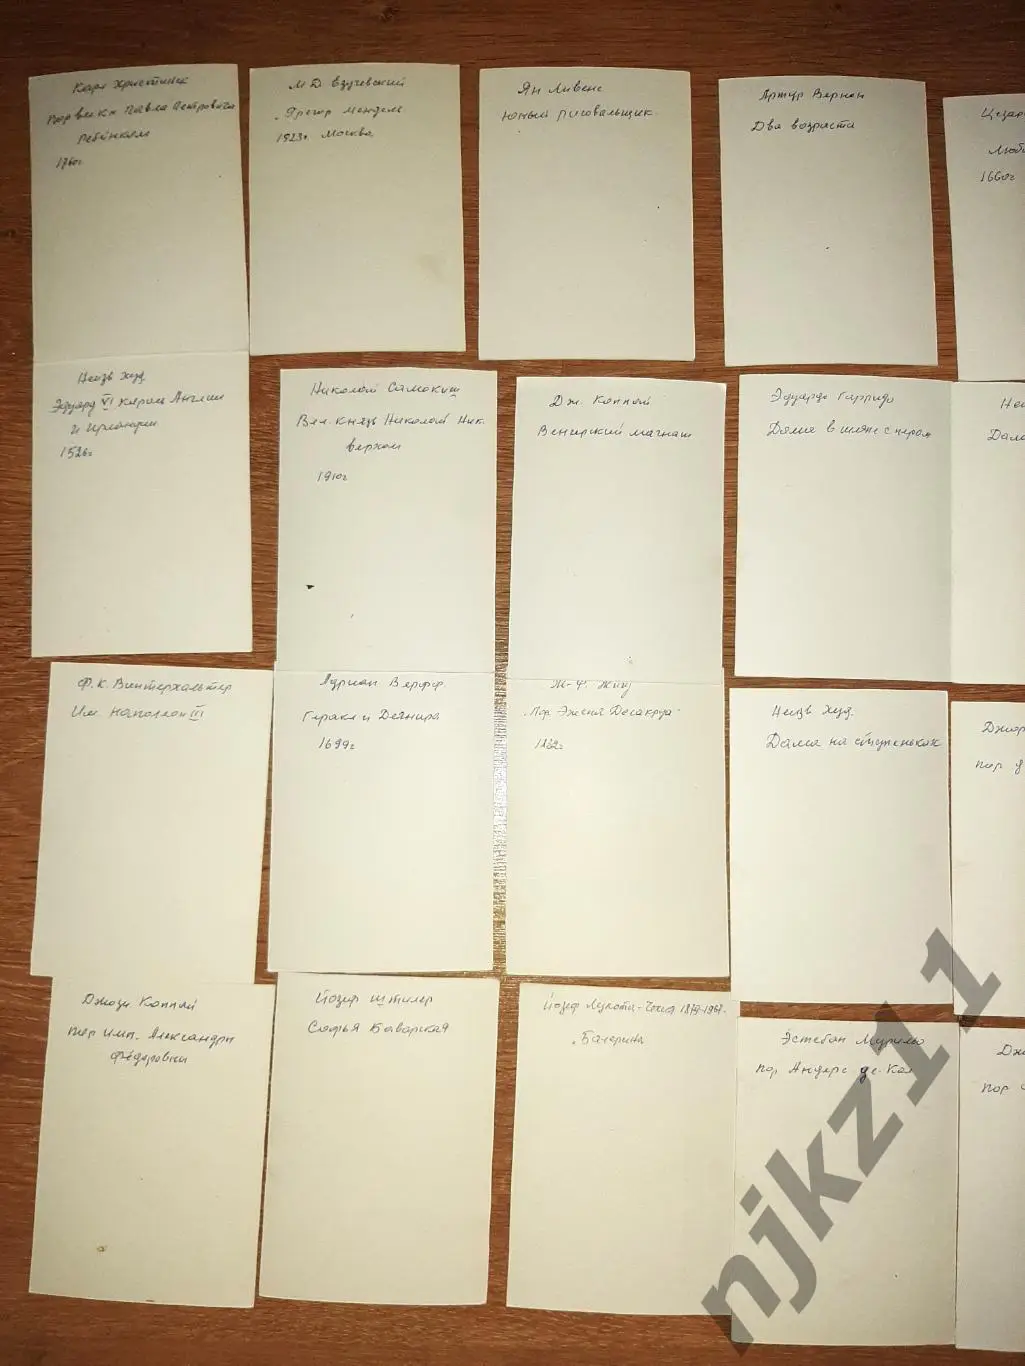 Карл Христинек
Портвик н Павла Петровича
ребёнком
1760г
М Д Взучевский
Грегор Мендель
1523г Москва
Ян Ливенс
Юный рисовальщик.
Артур Вернон
Два возраста
Цезар
Люб
1660г
Неизв худ.
Эдуард VI король Англии
и Ирландии
1526г
Николай Самокиш
Вел. князь Николай Ник.
верхом
1910г
Дж. Коппай
Венгерский магнат
Эдуардо Гарридо
Дама в шляпе с пером
Неи
Дама
Ф. К. Винтерхальтер
Им. Наполеон III
Адриан Верфф.
Геракл и Деянира
1699г
Пор. Эжена Делакруа
Неизв худ.
Дама на ступеньках
Джор
пор
Джози Коппай
пор имп. Александры
Фёдоровны
Йозеф Штилер
Софья Баварская
Йозеф Лукота - Чехия 1879-1967.
Балерина
Эстебан Мурильо
пор Андерс де-Кал
Дж
пор
njkz11